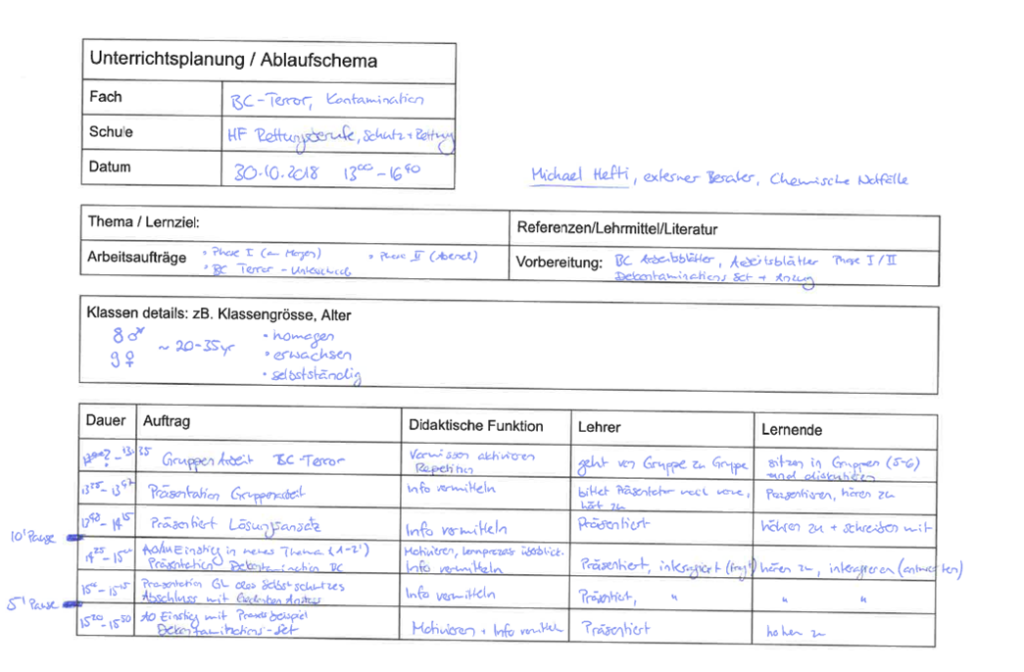 Unterrichtsplanung / Ablaufschema
Fach BC-Terror, Kontamination
Schule HF Rettungsberufe, Schutz + Rettung
Datum 30.10.2018 13⁰⁰ - 16⁴⁰
Michael Hefti, externer Berater, Chemische Notfälle
Thema / Lernziel: Referenzen/Lehrmittel/Literatur
Arbeitsaufträge • Phase I (am Morgen) • Phase II (Abend)
• BC Terror - Unterricht
Vorbereitung: BC Arbeitsblätter, Arbeitsblätter Phase I/II
Dekontaminations Set + Anzug
Klassen details: zB. Klassengrösse, Alter
8 ♂ • homogen
9 ♀ ~ 20-35yr • erwachsen
• selbstständig
Dauer Auftrag Didaktische Funktion Lehrer Lernende
Gruppen Arbeit BC-Terror Vorwissen aktivieren
Repetition geht von Gruppe zu Gruppe sitzen in Gruppen (5-6)
und diskutieren
Präsentation Gruppenarbeit Info vermitteln bittet Präsentator nach vorne,
hört zu Präsentieren, hören zu
Präsentiert Lösungsansatz Info vermitteln Präsentiert hören zu + schreiben mit
10' Pause
Einstieg in neues Thema (1-2') Motivieren, Lernprozess
Präsentation Dekontamination BC Info vermitteln Präsentiert, interagiert hören zu, interagieren (antworten)
Präsentation des Selbstschutzes
Abschluss mit Info vermitteln Präsentiert, " " "
5' Pause
15²⁰ - 15⁵⁰ Einstieg mit Praxisbeispiel
Dekontaminations-Set Motivieren + Info vermitteln Präsentiert hören zu